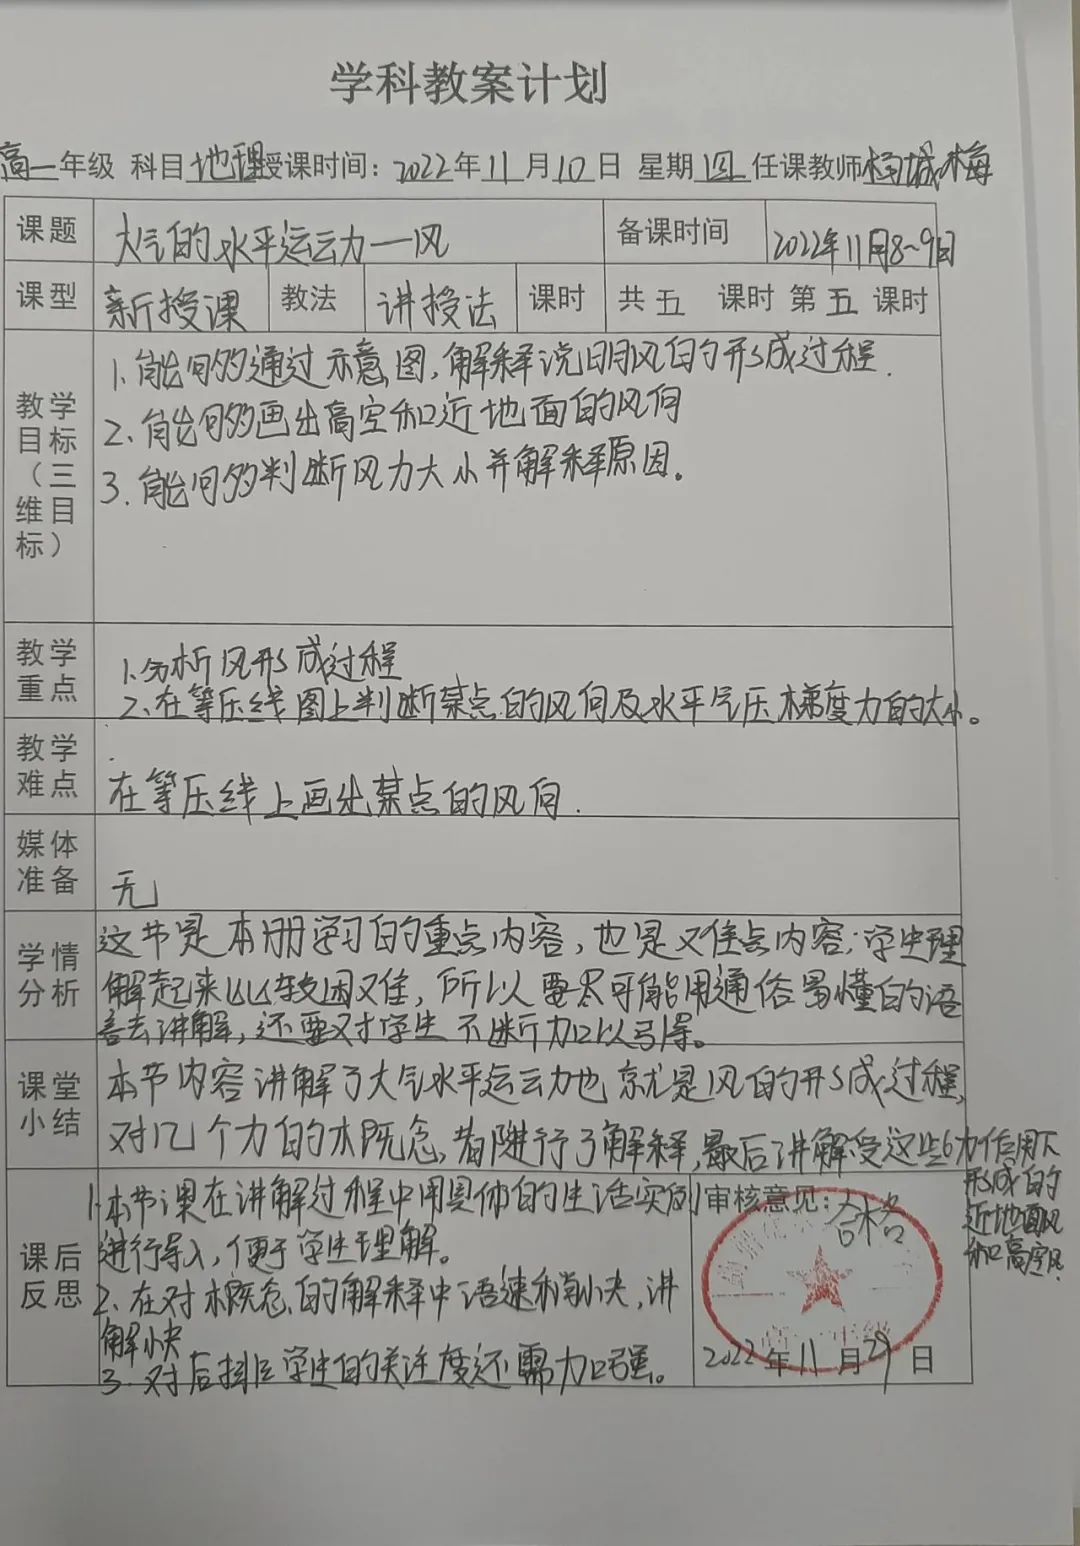 学科教案计划
高一年级 科目地理授课时间：2022年11月10日 星期四 任课教师杨城梅
课题 大气的水平运动—风 备课时间 2022年11月8~9日
课型 新授课 教法 讲授法 课时 共五 课时 第五 课时
教学目标（三维目标）
1.能够通过示意图,解释说明风的形成过程.
2.能够画出高空和近地面的风向
3.能够判断风力大小并解释原因。
教学重点
1.分析风形成过程
2.在等压线图上判断某点的风向及水平气压梯度力的大小。
教学难点
在等压线上画出某点的风向.
媒体准备
无
学情分析
这节是本册学习的重点内容,也是难点内容;学生理
解起来比较困难,所以要尽可能用通俗易懂的语
言去讲解,还要对学生不断加以引导。
课堂小结
本节内容讲解了大气水平运动也就是风的形成过程,
对几个力的概念,都进行了解释,最后讲解受这些力作用下
形成的
近地面风
和高空风.
课后反思
1.本节课在讲解过程中用具体的生活实例
进行导入,便于学生理解。
2.在对概念的解释中语速稍快,讲
解快
3.对后排学生的关注度还需加强。
审核意见：合格
2022年11月29日